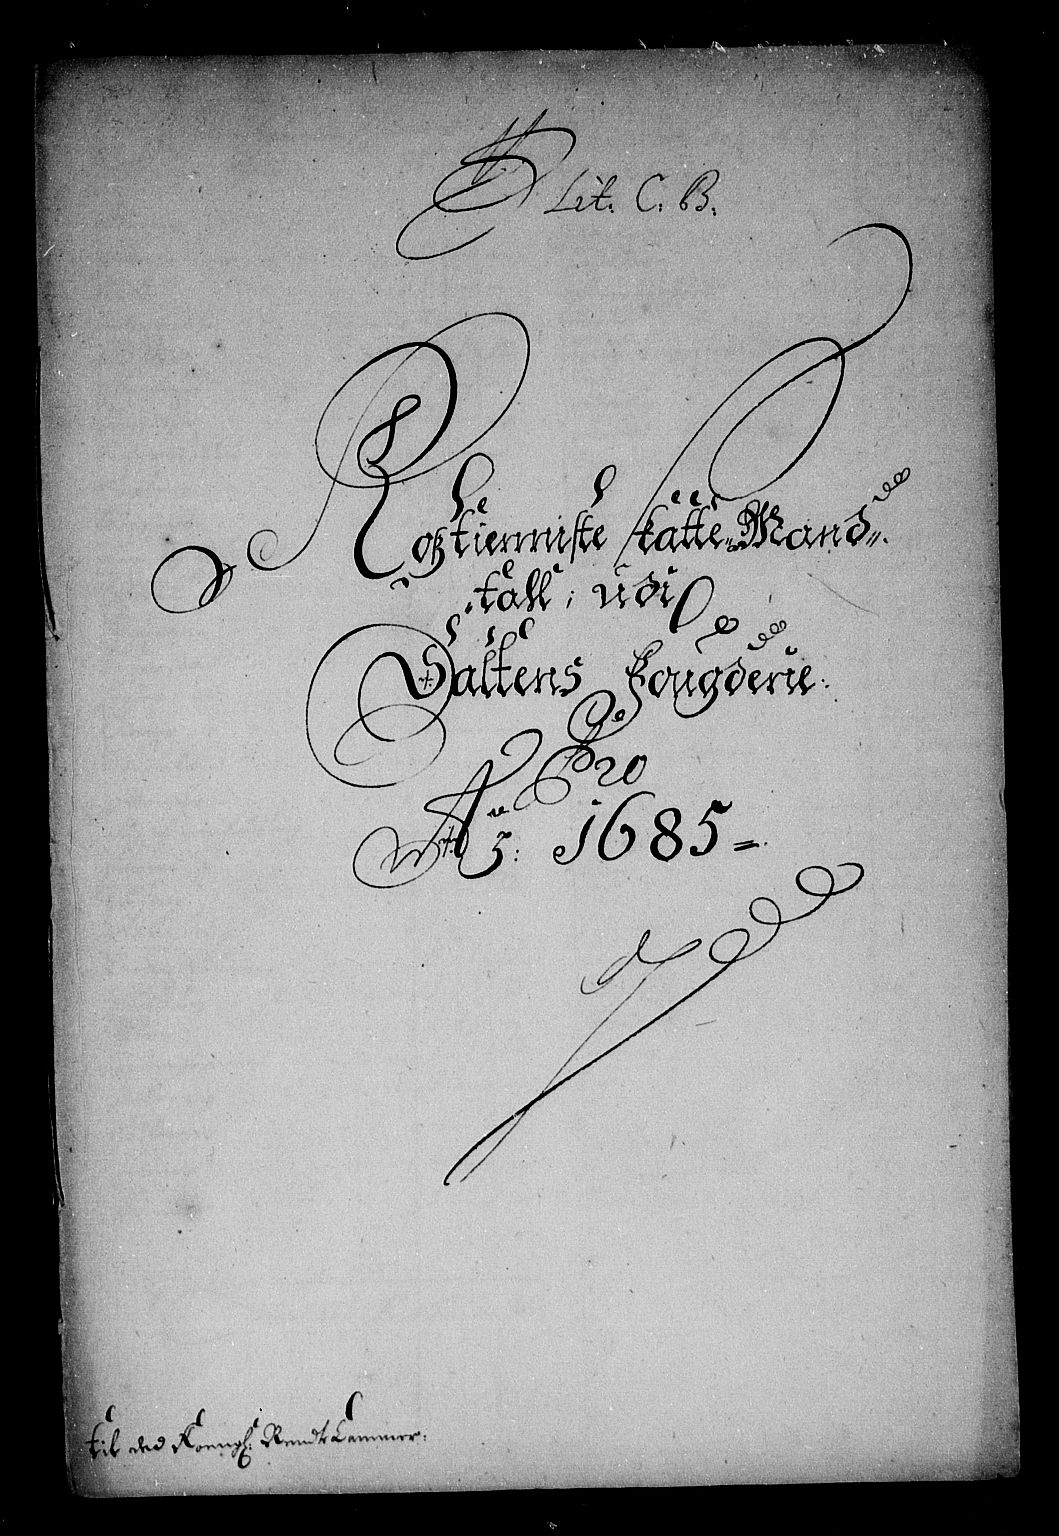 Lit: C: B:
Roßtienniste skatte-Mand-
tall; udi
Saltens Fougderie:
Pro
Aō: 1685
til ded Koengl: Rendte Cammer: